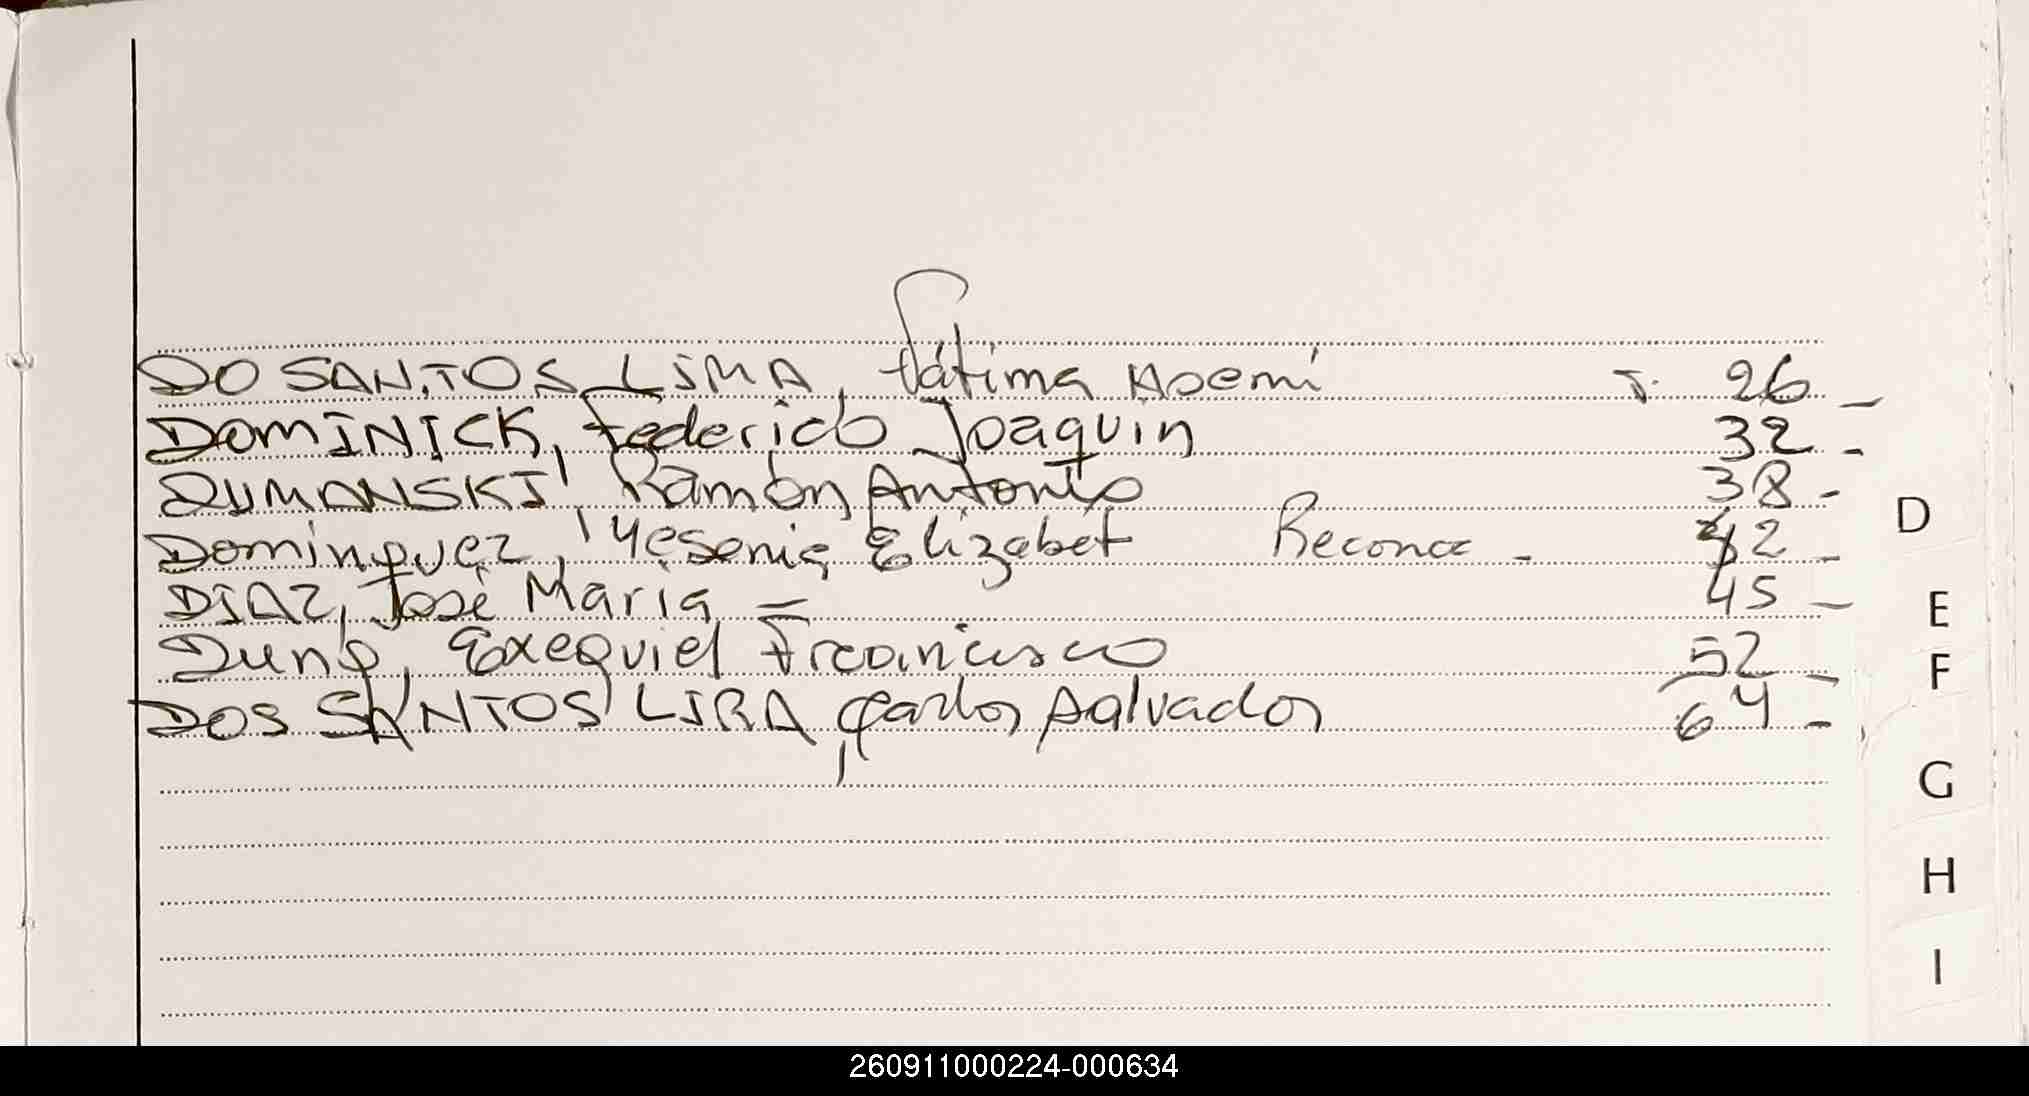 DO SANTOS LIMA, Fátima Noemí T. 26 -
DOMINICK, Federico Joaquin 32 -
DUMANSKI, Ramón Antonio 38 -
Dominguez, Yesenia Elizabet Reconoc - 42 -
DIAZ, José Maria - 45 -
Exequiel Francisco 52 -
DOS SANTOS LIRA, Carlos Salvador 64 -
D
E
F
G
H
I
260911000224-000634